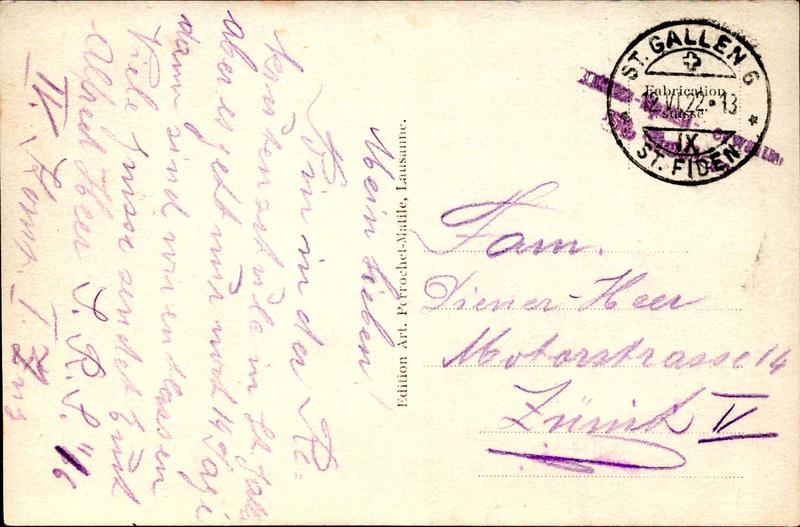 Mein lieben!
Bin in der Re-
krutenschule in St. Galle
aber es geht nur noch 14 Tage
dann sind wir entlassen
Viele Grüsse sendet Euch
Alfred Heer S. R. S. "/6
IV. Komp. I. Zug
Edition Art. Perrochet-Matile, Lausanne.
ST. GALLEN 6
Fabrication
suisse
12.VI.22.-13
IX
ST. FIDEN
Fam.
Diener-Heer
Motorstrasse 14
Zürich V